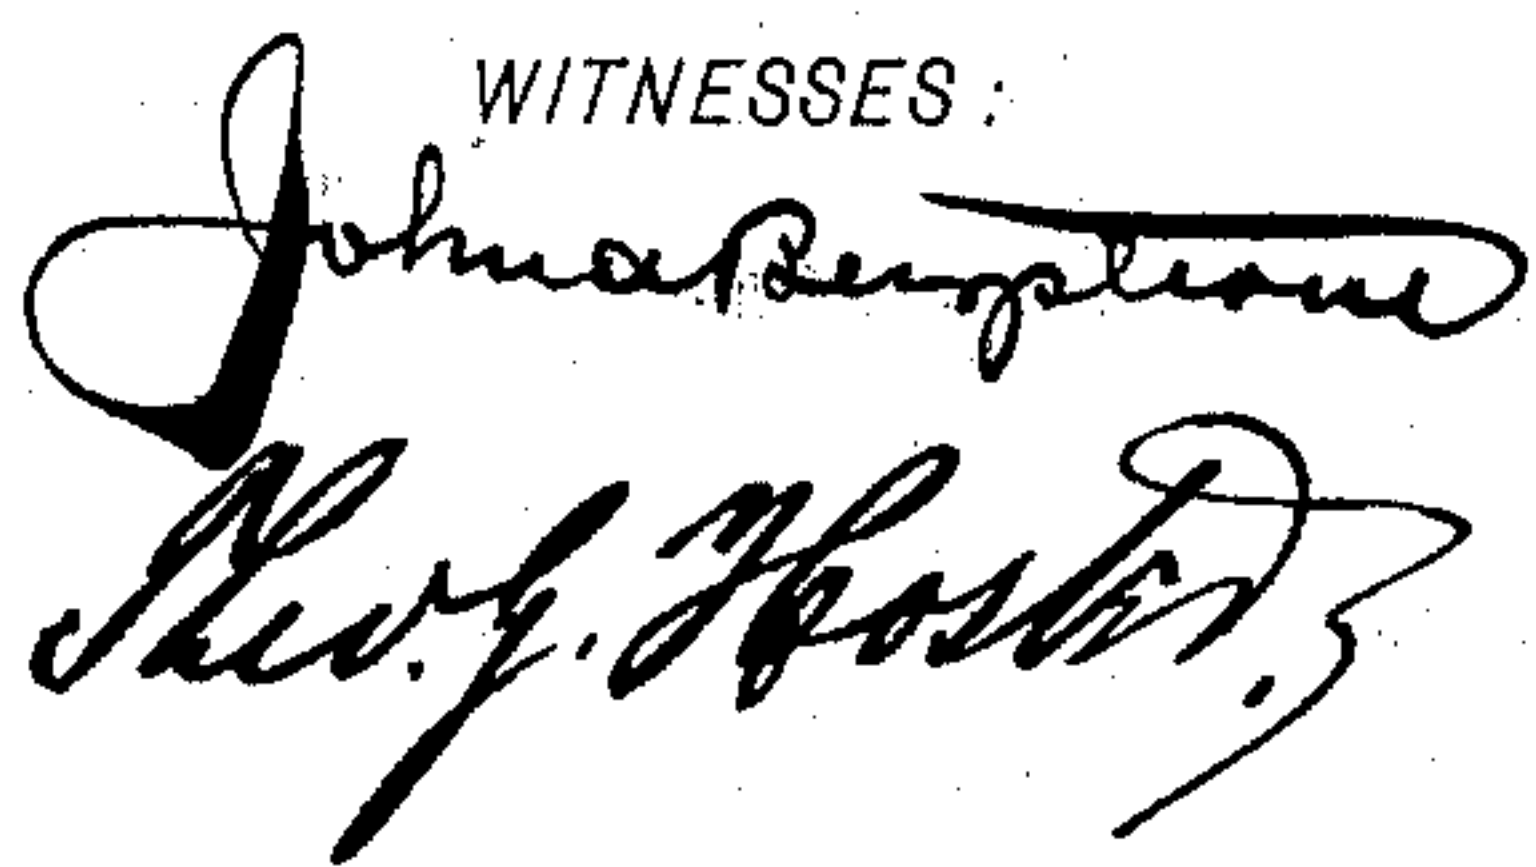 WITNESSES:
John a Bergstrom
Theo. G. Hoster.